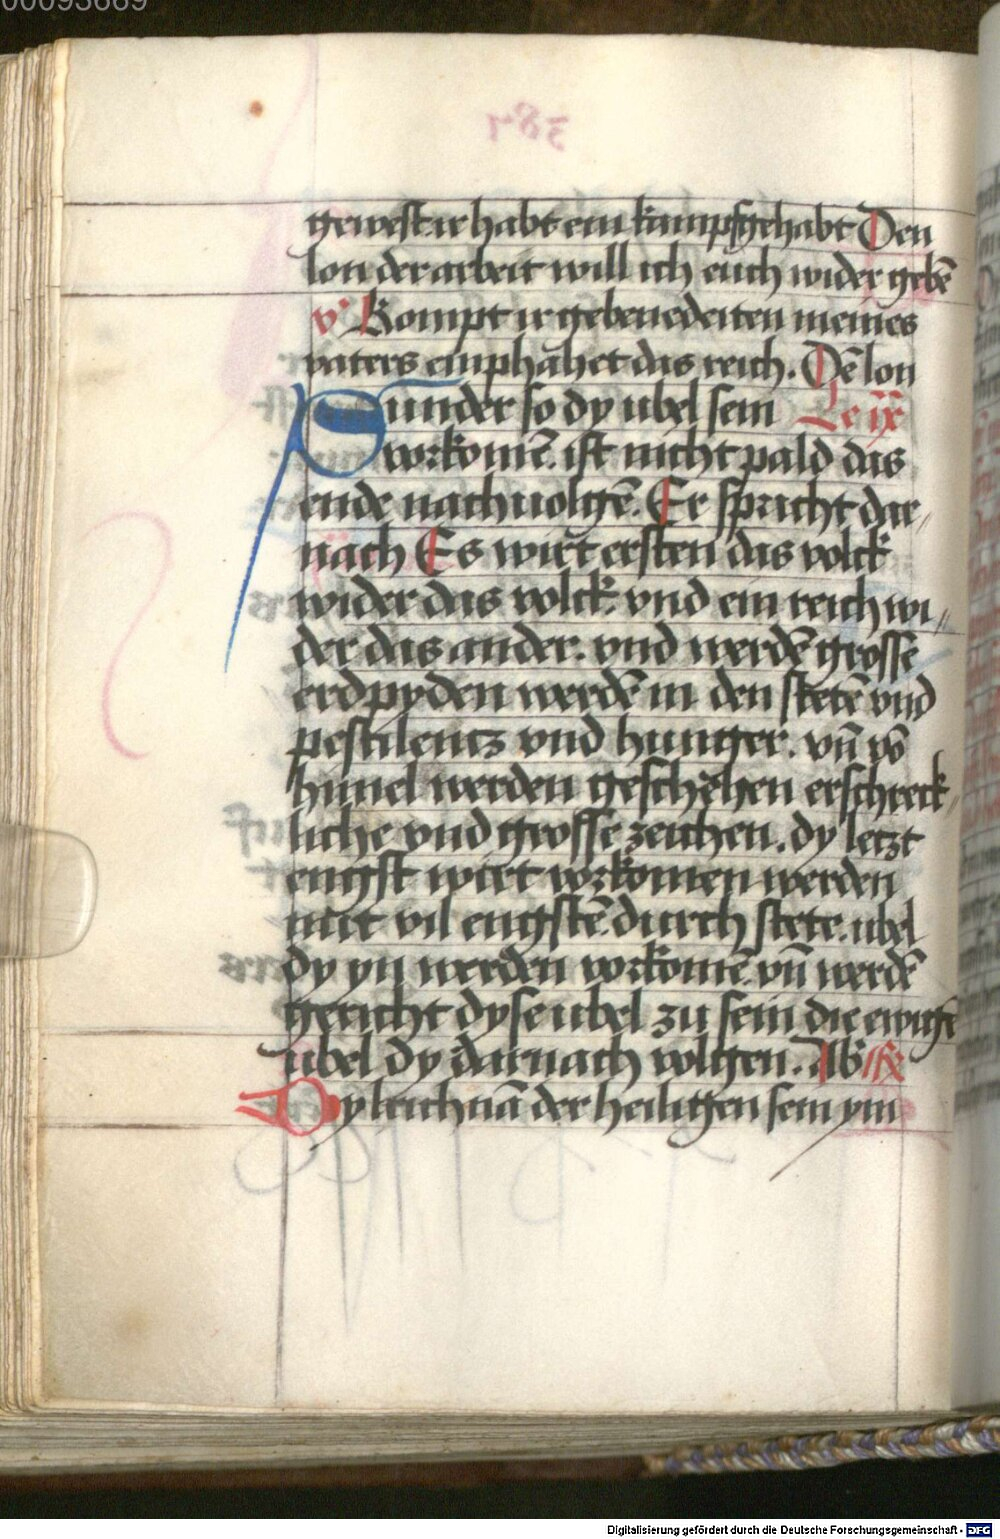 gewest ir habt ein kampf gehabt Den
lon der arbeit will ich euch wider gebē
v̓ Kompt ir gebenedeiten meines
vaters emphahet das reich. Dē lon
Sunder so dy ubel sein Le ix
vorkomē. ist nicht pald das
ende nachuolgē. Er spricht dar„
nach Es wirt ersten das volck
wider das volck. vnd ein reich wi„
der das ander. vnd werdē grosse
erdpyden werdē in den stetē vnd
pestilentz vnd hunger. vn̄ vō
himel werden geschehen erschreck„
liche vnd grosse zeichen. dy letzt
engst wirt vorkomen werden
mit vil engstē durch stete. ubel
dy yn werden vorkomē. vn̄ werdē
gericht dyse ubel zu sein die ewigē
ubel dy darnach volgen. Ab
Dy leichnā der heiligen sein ym
Digitalisierung gefördert durch die Deutsche Forschungsgemeinschaft - DFG